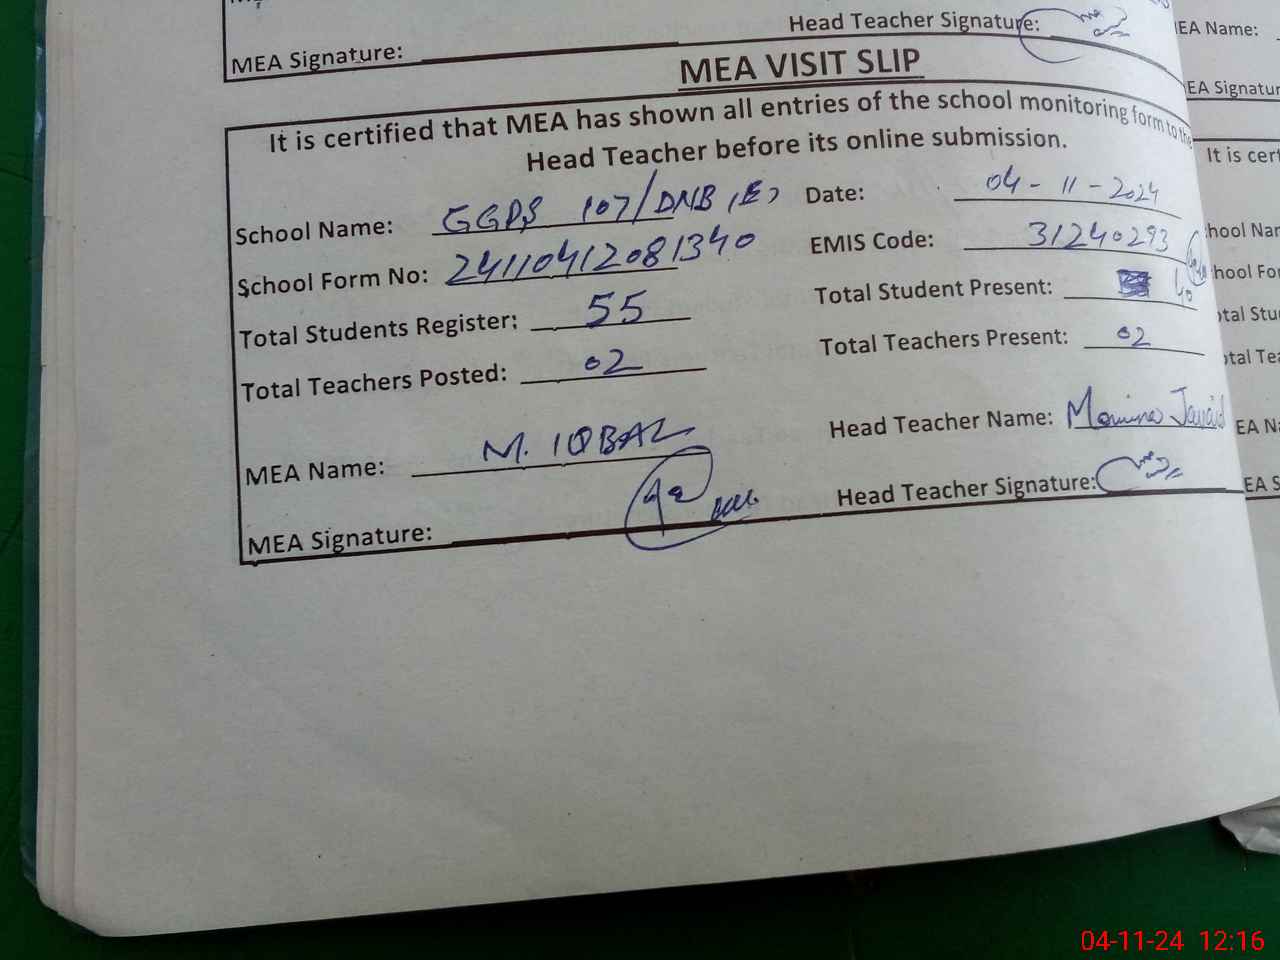 Head Teacher Signature:
MEA Signature:
MEA VISIT SLIP
It is certified that MEA has shown all entries of the school monitoring form to the
Head Teacher before its online submission.
School Name: GGPS 107/DNB (E) Date: 04-11-2024
School Form No: 2411041208 1340 EMIS Code: 31240293
Total Students Register: 55 Total Student Present: 40
Total Teachers Posted: 02 Total Teachers Present: 02
MEA Name: M. IQBAL Head Teacher Name: Momina Javaid
MEA Signature: Head Teacher Signature:
EA Name:
EA Signatur
It is cert
hool Nar
hool Fo
otal Stu
otal Tea
EA Na
EA S
04-11-24 12:16